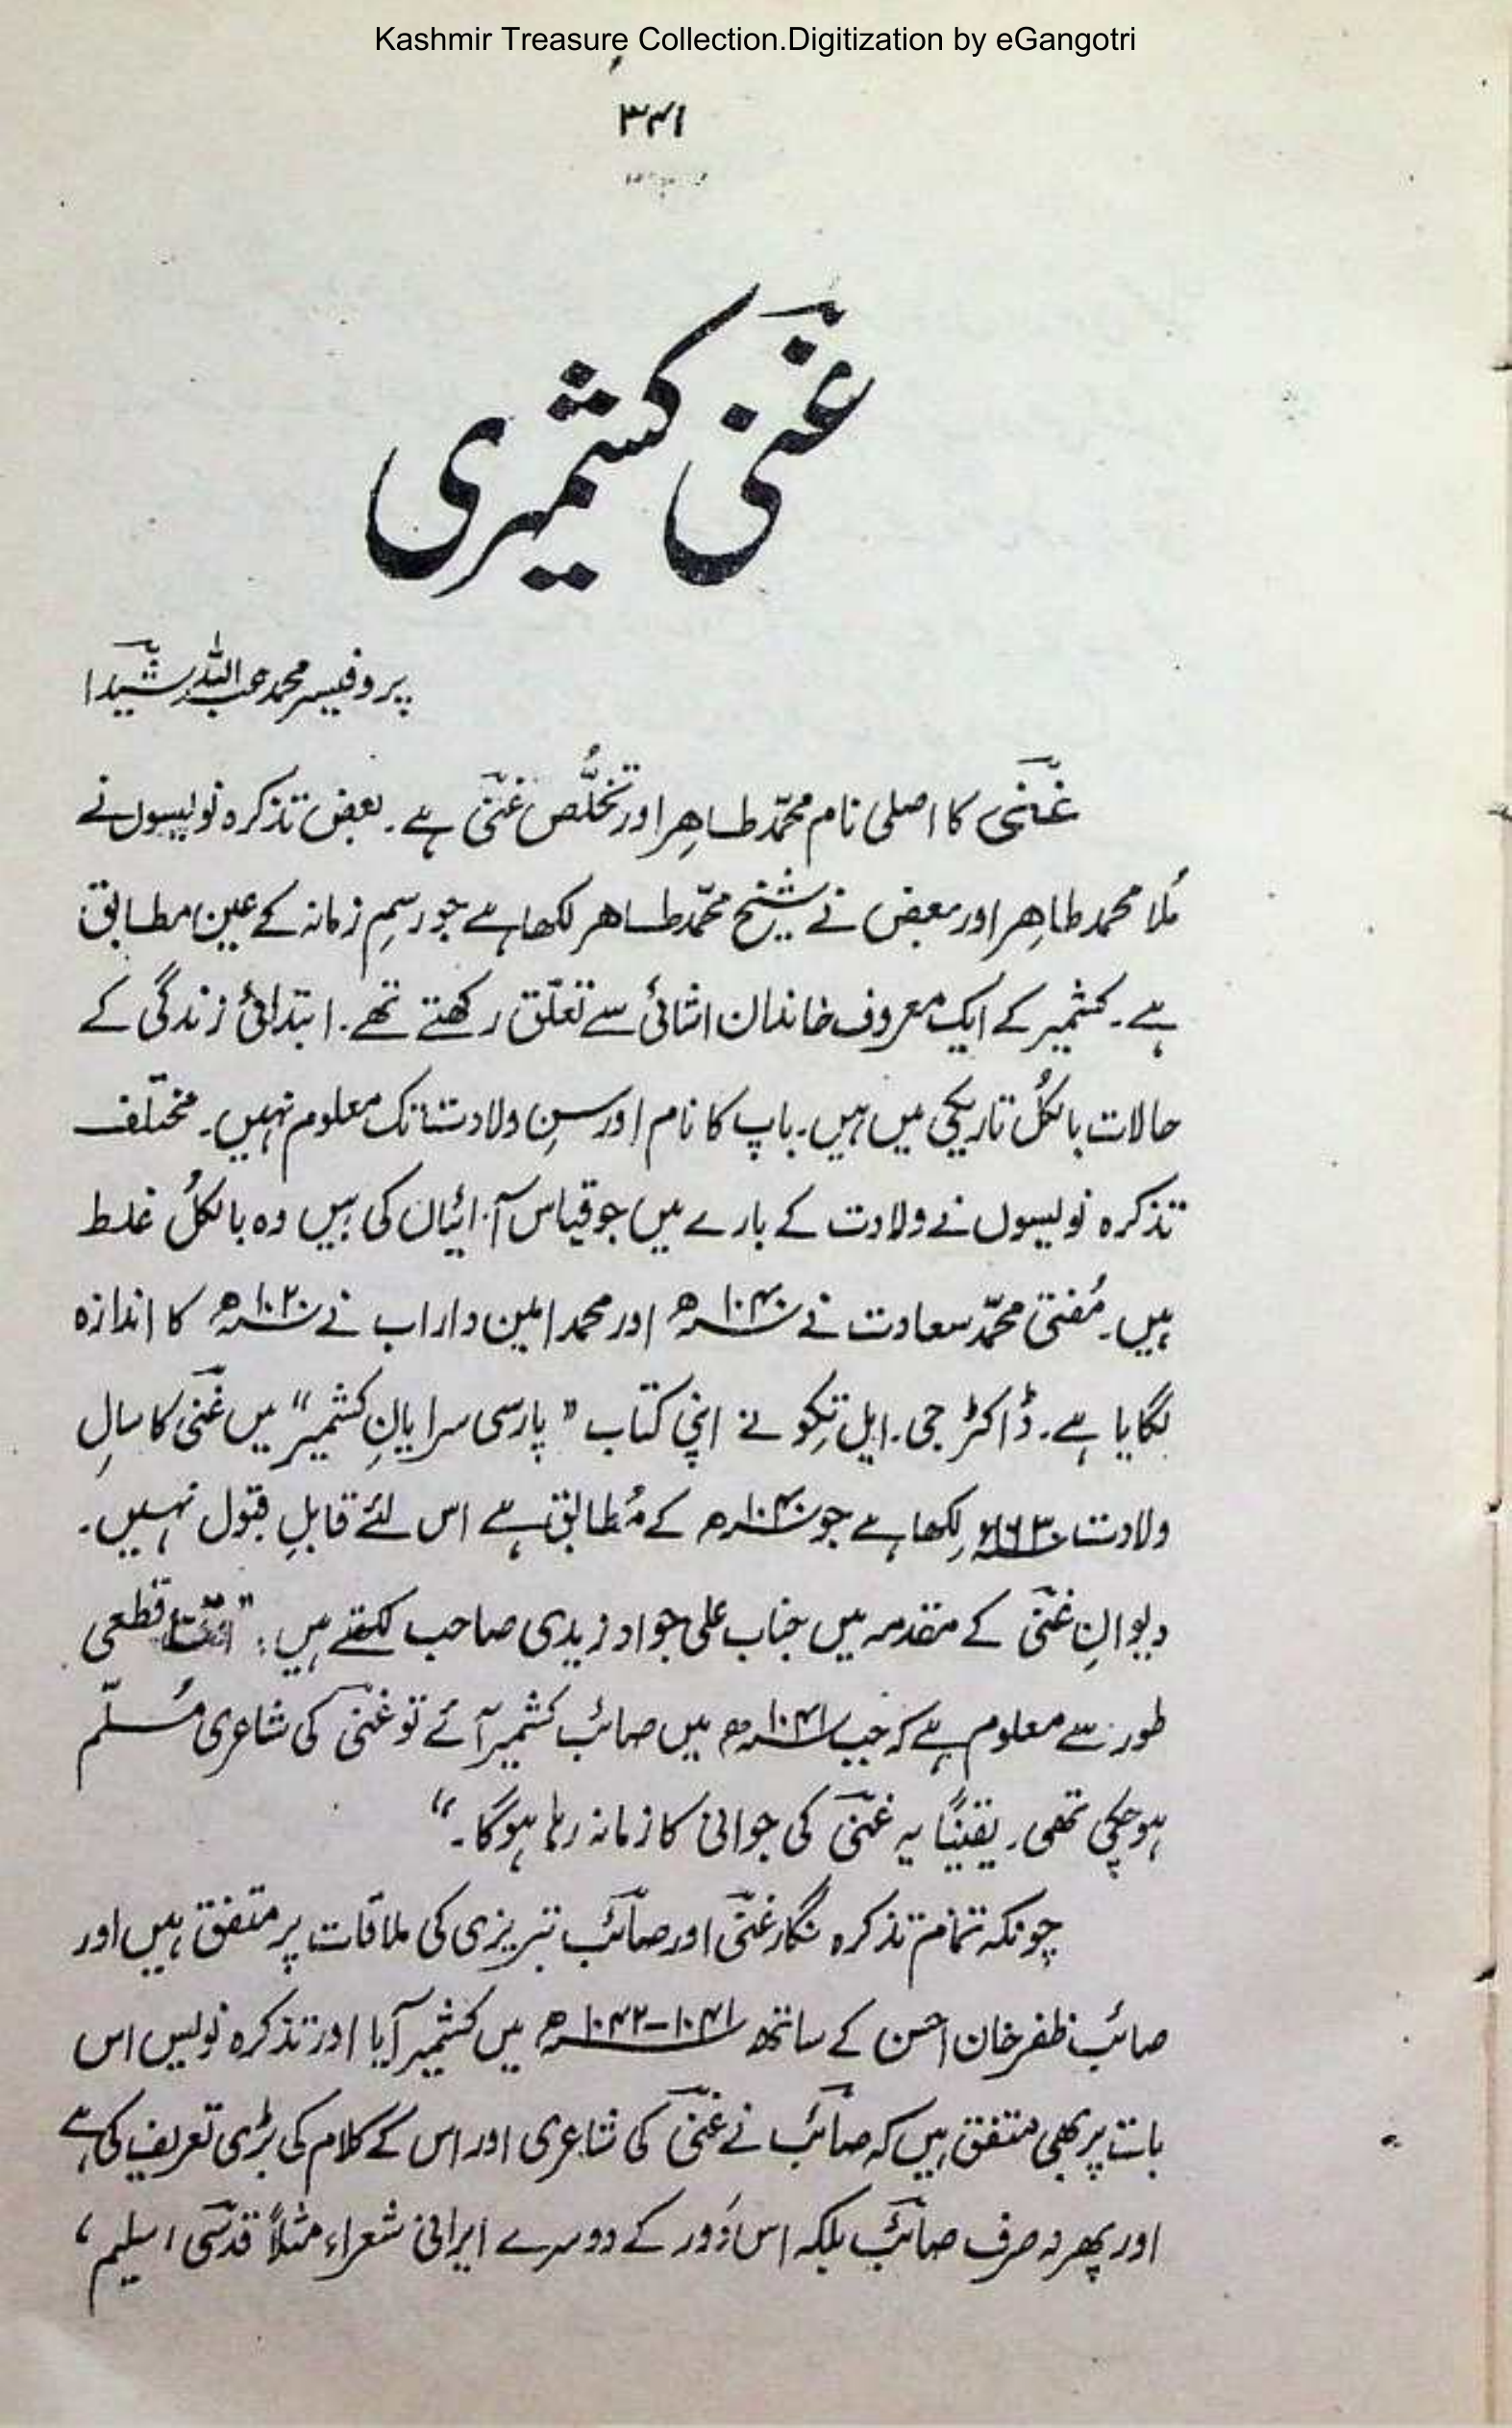 Kashmir Treasure Collection.Digitization by eGangotri
۳۴۱
غنیؔ کشمیری
پروفیسر محمد عبداللہ شیداؔ
غنیؔ کا اصلی نام محمّد طاہِر اور تخلُّص غنیؔ ہے۔ بعض تذکرہ نویسوں نے
مُلا محمد طاہِر اور بعض نے شیخ محمّد طاہر لکھا ہے جو رسمِ زمانہ کے عین مطابق
ہے۔ کشمیر کے ایک معروف خاندان اشائی سے تعلّق رکھتے تھے۔ ابتدائی زندگی کے
حالات بالکُل تاریکی میں ہیں۔ باپ کا نام اور سنِ ولادت تک معلوم نہیں۔ مختلف
تذکرہ نویسوں نے ولادت کے بارے میں جو قیاس آرائیاں کی ہیں وہ بالکُل غلط
ہیں۔ مُفتی محمّد سعادت نے ۱۰۴۰ھ اور محمد امین داراب نے ۱۰۲۰ھ کا اندازہ
لگایا ہے۔ ڈاکٹر جی۔ ایل تِکو نے اپنی کتاب ”پارسی سرایانِ کشمیر“ میں غنیؔ کا سالِ
ولادت ۱۶۳۰ء لِکھا ہے جو ۱۰۴۰ھ کے مُطابق ہے اس لئے قابلِ قبول نہیں۔
دیوانِ غنیؔ کے مقدمہ میں جناب علی جواد زیدی صاحب لکھتے ہیں: ” قطعی
طور سے معلوم ہے کہ جب ۱۰۴۱ھ میں صائب کشمیر آئے تو غنیؔ کی شاعری مُسلّم
ہو چکی تھی۔ یقیناً یہ غنیؔ کی جوانی کا زمانہ رہا ہوگا۔“
چونکہ تمام تذکرہ نگار غنیؔ اور صائبؔ تبریزی کی ملاقات پر متفق ہیں اور
صائب ظفر خان احسن کے ساتھ ۱۰۴۱–۱۰۴۲ھ میں کشمیر آیا اور تذکرہ نویس اس
بات پر بھی متفق ہیں کہ صائبؔ نے غنیؔ کی شاعری اور اس کے کلام کی بڑی تعریف کی ہے
اور پھر نہ صرف صائبؔ بلکہ اس دَور کے دوسرے ایرانی شعراء مثلاً قدسیؔ، سلیم،